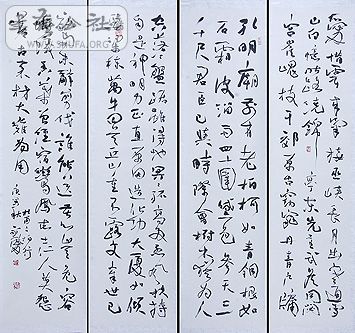 愛惜雲來氣接巫峽長月出寒通雪
山白憶昨路繞錦亭東先主武侯同閟
宮崔嵬枝幹郊原古窈窕丹青户牖
孔明廟前有老柏柯如青銅根如
石霜皮溜雨四十圍黛色參天二
千尺君臣已與時際會樹木猶為人
空落落盤踞雖得地冥冥孤高多烈風扶持
自是神明力正直原因造化功大廈如傾
要梁棟萬牛回首丘山重不露文章世已
驚未辭剪伐誰能送苦心豈免容
螻蟻香葉終經宿鸞鳳志士幽人莫怨
嗟古來材大難為用 庚寅秋
WWW.SHUFA.ORG